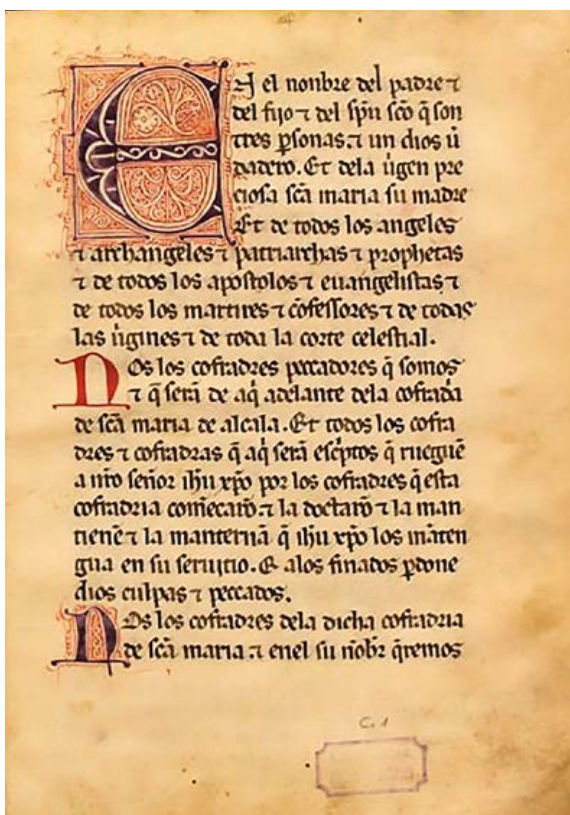 En el nonbre del padre ⁊
del fijo ⁊ del sp̄u sc̄o q̄ son
tres p̱sonas.⁊ un dios ū
dadero. Et dela ūgen pre
ciosa sc̄a maria su madre
Et de todos los angeles
⁊ archangeles ⁊ patriarchas ⁊ prophetas
⁊ de todos los apostolos ⁊ euangelistas ⁊
de todos los martires ⁊ cōfessores ⁊ de todas
las ūgines ⁊ de toda la corte celestial.
Nos los cofradres peccadores q̄ somos
⁊ q̄ serā de aq̄ adelante dela cofradia
de sc̄a maria de alcala. Et todos los cofra
dres ⁊ cofradras q̄ aq̄ serā esc̄ptos q̄ rueguē
a nr̄o señor ih̄u xp̄o por los cofradres q̄ esta
cofradria comēcarō.⁊ la doctarō ⁊ la man
tienē ⁊ la manternā q̄ ih̄u xp̄o los māten
gua en su seruicio. E alos finados p̱done
dios culpas ⁊ peccados.
Nos los cofradres dela dicha cofradria
de sc̄a maria ⁊ enel su nōbr̄ q̄remos
C.1